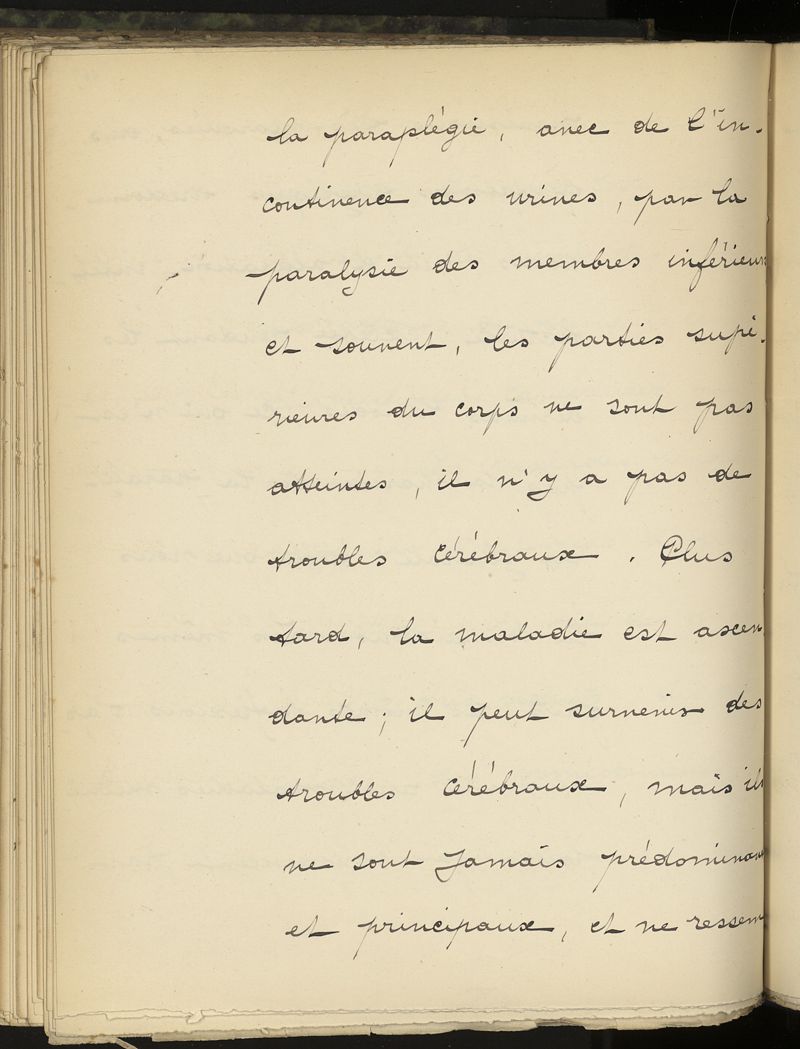 la paraplégie, avec de l'in-
continence des urines, par la
paralysie des membres inférieurs
et souvent, les parties supé-
rieures du corps ne sont pas
atteintes, il n'y a pas de
troubles cérébraux. Plus
tard, la maladie est ascen
dante; il peut survenir des
troubles cérébraux, mais ils
ne sont jamais prédominan
et principaux, et ne ressem